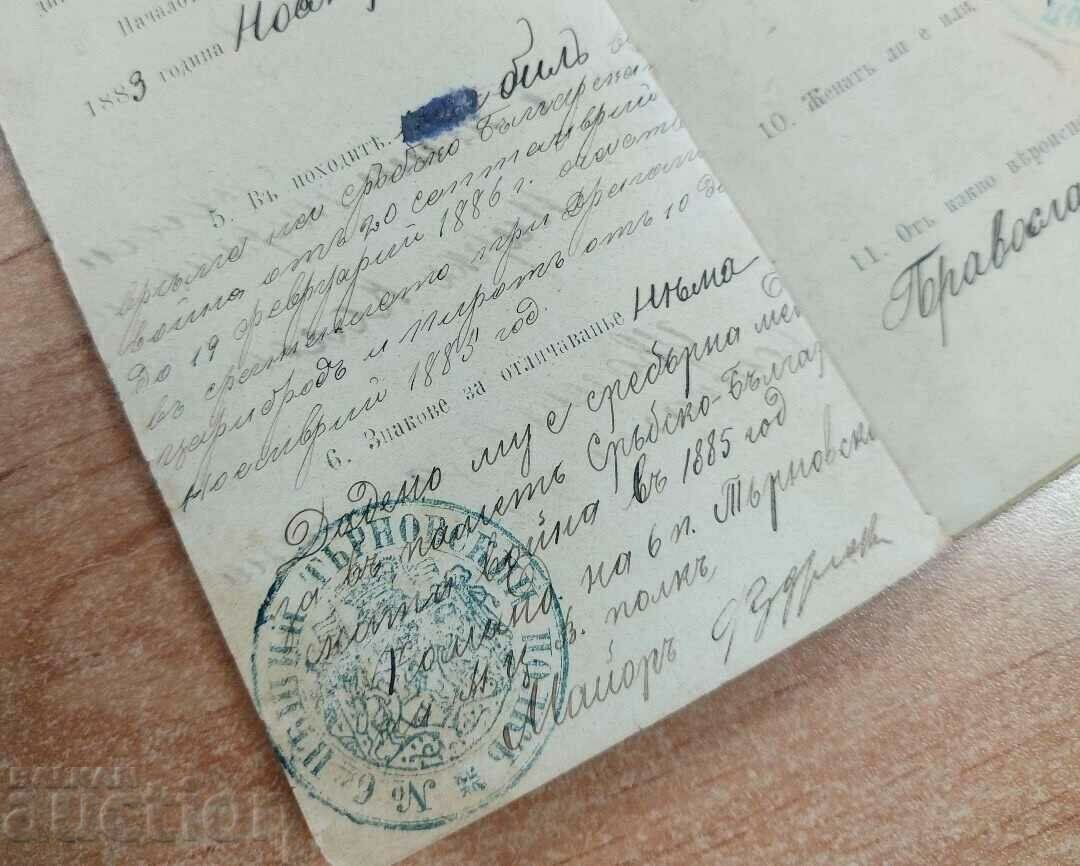 Начало
1883 година Ноа
5. Въ походитѣ. билъ в
връме на сръбско Българска
война отъ 20 септемврий
до 19 февруарий 1886 г. участв
въ сражението при Драгома
Царибродъ и Пиротъ отъ 10 до
ноемврий 1885 год.
6. Знакове за отличаванье Нѣма
Дадено му е сребърна ме
за въ паметь Сръбско-Българ
ската война въ 1885 год
на 6 п. Търновски
полкъ
Майоръ
№ 6й ПѢШИЙ ТЪРНОВСКИЙ ПОЛКЪ
10. Женатъ ли е или
11. Отъ какво вѣроиспо
Правосла
БАЛКАН
auction